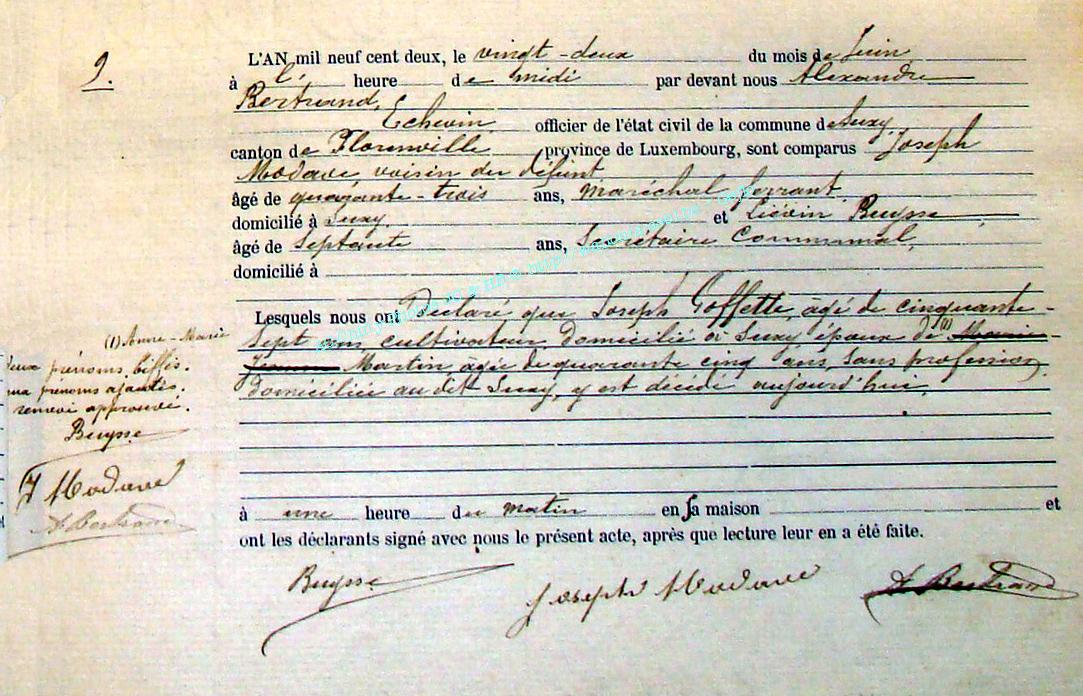 9.
L'AN mil neuf cent deux, le vingt-deux du mois de Juin
à l' heure de midi par devant nous Alexandre
Bertrand,
Echevin officier de l'état civil de la commune de Suxy
canton de Florenville province de Luxembourg, sont comparus Joseph
Modave voisin du défunt
âgé de quarante-trois ans, maréchal ferrant
domicilié à Suxy et Liévin Buysse
âgé de septante ans, Secrétaire Communal,
domicilié à
Lesquels nous ont Déclaré que Joseph Goffette, âgé de cinquante-
sept ans, cultivateur, domicilié à Suxy, époux de (1) Marie-
Jeanne Martin, âgée de quarante cinq ans, sans profession,
domiciliée au dit Suxy, y est décédé aujourd'hui,
à une heure du matin en sa maison et
ont les déclarants signé avec nous le présent acte, après que lecture leur en a été faite.
Buysse Joseph Modave A Bertrand
(1) Anne-Marie
Deux prénoms biffés.
prénoms ajoutés.
renvoi approuvé.
Buysse
J Modave
A Bertrand